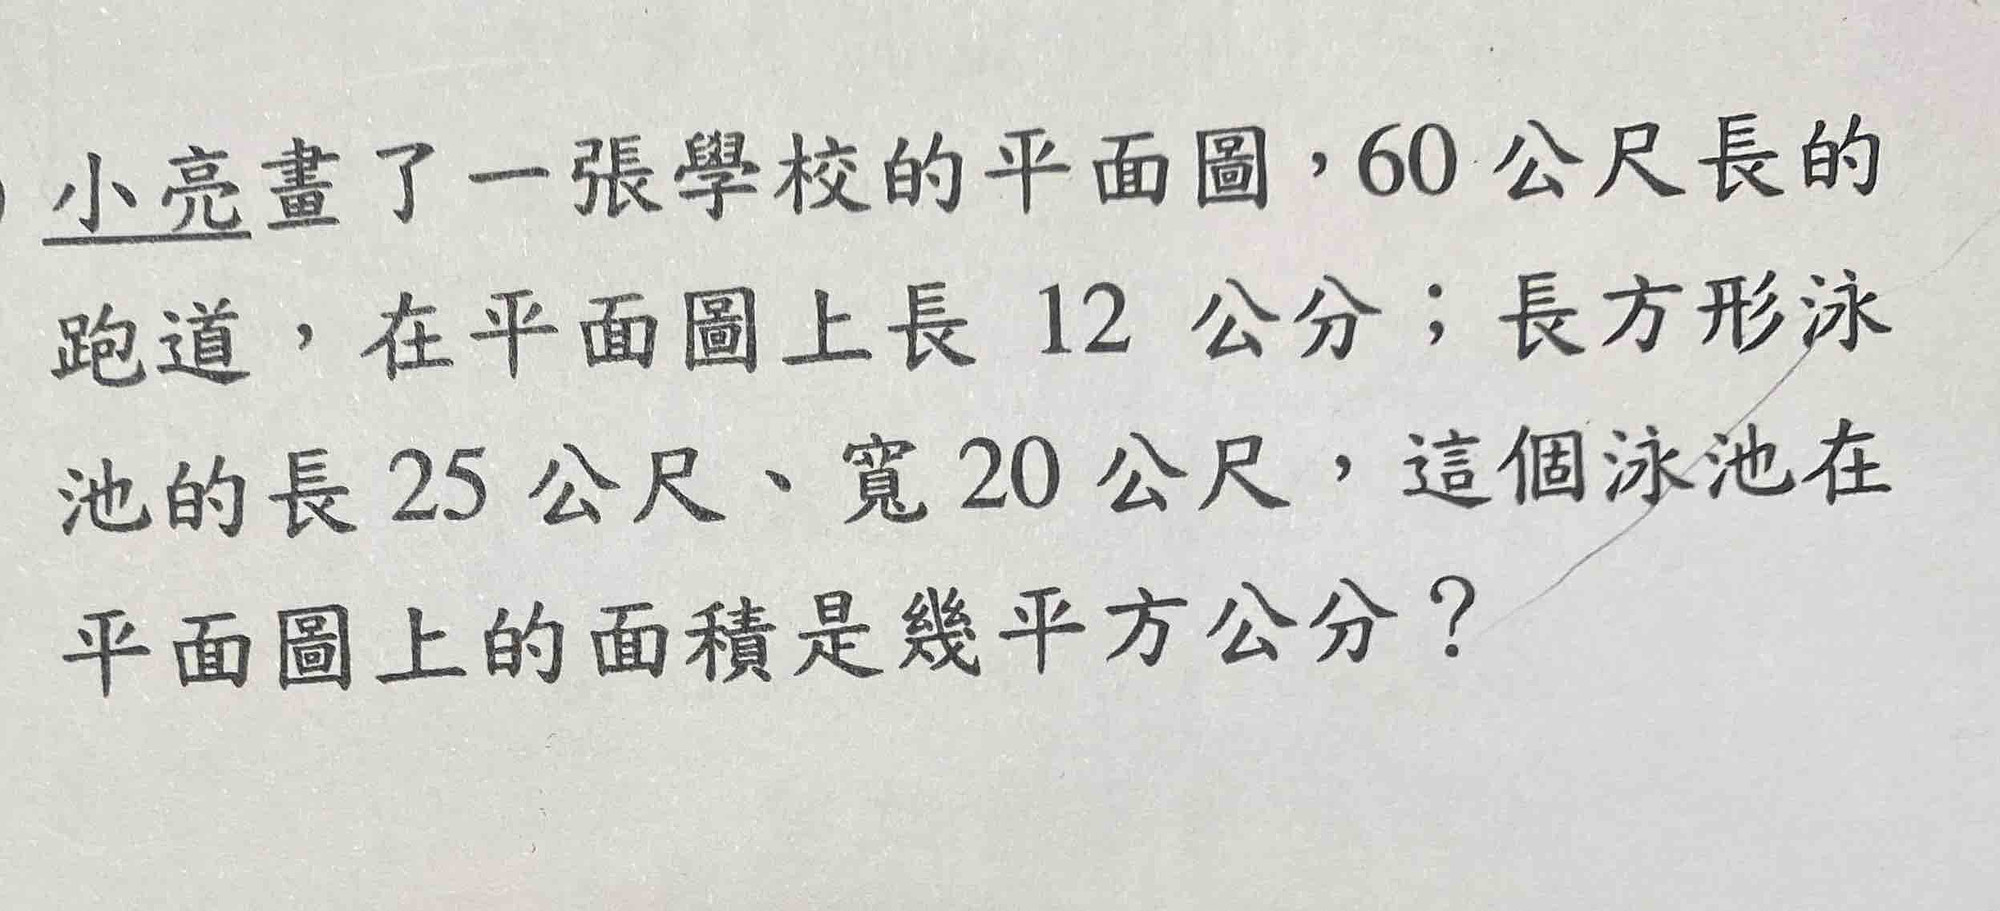 小亮畫了一張學校的平面圖，60 公尺長的
跑道，在平面圖上長 12 公分；長方形泳
池的長 25 公尺、寬 20 公尺，這個泳池在
平面圖上的面積是幾平方公分？